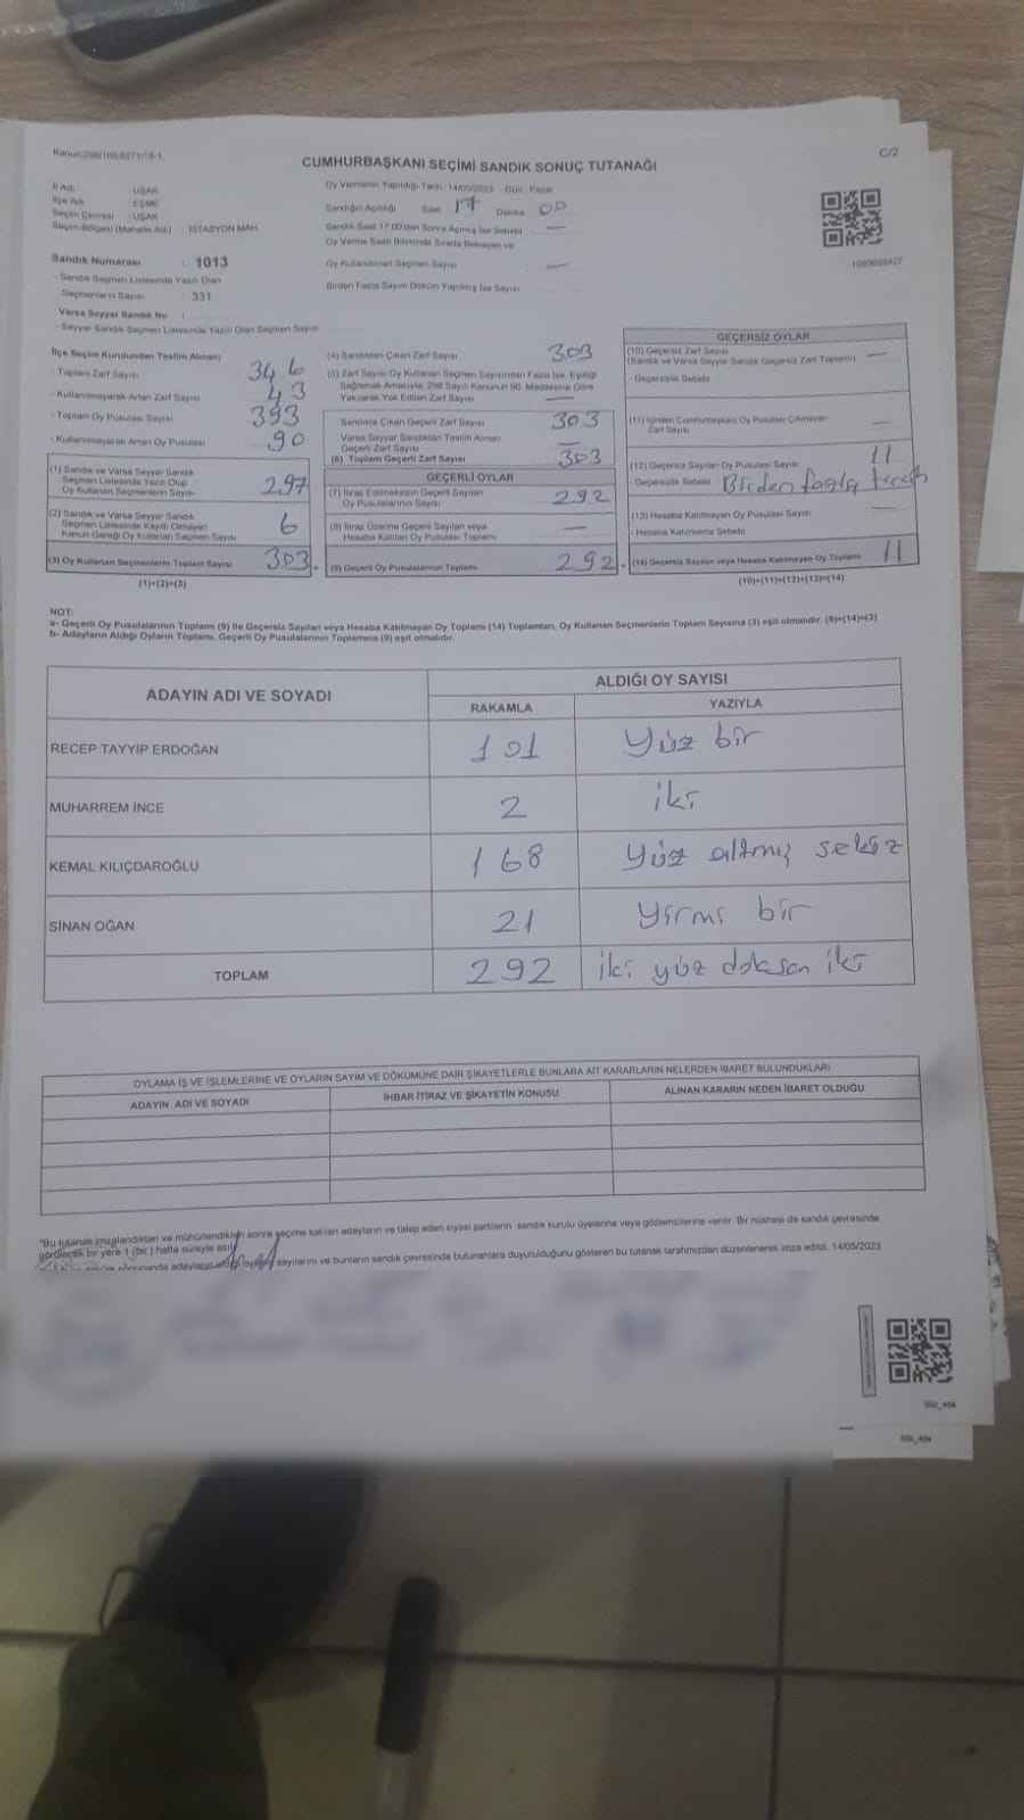 C/2
CUMHURBAŞKANI SEÇİMİ SANDIK SONUÇ TUTANAĞI
İl Adı : UŞAK
İlçe Adı : EŞME
Seçim Çevresi : UŞAK
Seçim Bölgesi (Mahalle Adı) : İSTASYON MAH.
Oy Vermenin Yapıldığı Tarih: 14/05/2023 Gün: Pazar
Sandığın Açıldığı Saat 17 Dakika 00
Sandık Saat 17:00'den Sonra Açılmış İse Sebebi —
Oy Verme Saati Bitiminde Sırada Bekleyen ve
Oy Kullandırılan Seçmen Sayısı —
Birden Fazla Sayım Döküm Yapılmış İse Sayısı
Sandık Numarası : 1013
- Sandık Seçmen Listesinde Yazılı Olan
Seçmenlerin Sayısı : 331
Varsa Seyyar Sandık No :
- Seyyar Sandık Seçmen Listesinde Yazılı Olan Seçmen Sayısı :
İlçe Seçim Kurulundan Teslim Alınan;
- Toplam Zarf Sayısı 346
- Kullanılmayarak Artan Zarf Sayısı 43
- Toplam Oy Pusulası Sayısı 393
- Kullanılmayarak Artan Oy Pusulası 90
(1) Sandık ve Varsa Seyyar Sandık
Seçmen Listesinde Yazılı Olup
Oy Kullanan Seçmenlerin Sayısı 297
(2) Sandık ve Varsa Seyyar Sandık
Seçmen Listesinde Kayıtlı Olmayan
Kanun Gereği Oy Kullanan Seçmen Sayısı 6
(3) Oy Kullanan Seçmenlerin Toplam Sayısı 303
(1)+(2)=(3)
(4) Sandıktan Çıkan Zarf Sayısı 303
(5) Zarf Sayısı Oy Kullanan Seçmen Sayısından Fazla İse, Eşitliği
Sağlamak Amacıyla 298 Sayılı Kanunun 98. Maddesine Göre
Yakılarak Yok Edilen Zarf Sayısı —
Sandıkta Çıkan Geçerli Zarf Sayısı 303
Varsa Seyyar Sandıktan Teslim Alınan
Geçerli Zarf Sayısı —
(6) Toplam Geçerli Zarf Sayısı 303
GEÇERLİ OYLAR
(7) İtiraz Edilmeksizin Geçerli Sayılan
Oy Pusulalarının Sayısı 292
(8) İtiraz Üzerine Geçerli Sayılan veya
Hesaba Katılan Oy Pusulası Toplamı —
(9) Geçerli Oy Pusulalarının Toplamı 292
GEÇERSİZ OYLAR
(10) Geçersiz Zarf Sayısı
(Sandık ve Varsa Seyyar Sandık Geçersiz Zarf Toplamı) —
- Geçersizlik Sebebi
(11) İçinden Cumhurbaşkanı Oy Pusulası Çıkmayan
Zarf Sayısı —
(12) Geçersiz Sayılan Oy Pusulası Sayısı 11
- Geçersizlik Sebebi Birden fazla tercih
(13) Hesaba Katılmayan Oy Pusulası Sayısı —
- Hesaba Katılmama Sebebi
(14) Geçersiz Sayılan veya Hesaba Katılmayan Oy Toplamı 11
(10)+(11)+(12)+(13)=(14)
NOT:
a- Geçerli Oy Pusulalarının Toplamı (9) ile Geçersiz Sayılan veya Hesaba Katılmayan Oy Toplamı (14) Toplamları, Oy Kullanan Seçmenlerin Toplam Sayısına (3) eşit olmalıdır. (9)+(14)=(3)
b- Adayların Aldığı Oyların Toplamı, Geçerli Oy Pusulalarının Toplamına (9) eşit olmalıdır.
ADAYIN ADI VE SOYADI ALDIĞI OY SAYISI
RAKAMLA YAZIYLA
RECEP TAYYİP ERDOĞAN 101 Yüz bir
MUHARREM İNCE 2 iki
KEMAL KILIÇDAROĞLU 168 Yüz altmış sekiz
SİNAN OĞAN 21 Yirmi bir
TOPLAM 292 iki yüz doksan iki
OYLAMA İŞ VE İŞLEMLERİNE VE OYLARIN SAYIM VE DÖKÜMÜNE DAİR ŞİKAYETLERLE BUNLARA AİT KARARLARIN NELERDEN İBARET BULUNDUKLARI
ADAYIN ADI VE SOYADI İHBAR İTİRAZ VE ŞİKAYETİN KONUSU ALINAN KARARIN NEDEN İBARET OLDUĞU
"Bu tutanak imzalandıktan ve mühürlendikten sonra seçime katılan adayların ve talep eden siyasi partilerin sandık kurulu üyelerine veya gözlemcilerine verilir. Bir nüshası da sandık çevresinde
görülecek bir yere 1 (bir) hafta süreyle asılır.
sayılarını ve bunların sandık çevresinde bulunanlara duyurulduğunu gösteren bu tutanak tarafımızdan düzenlenerek imza edildi. 14/05/2023